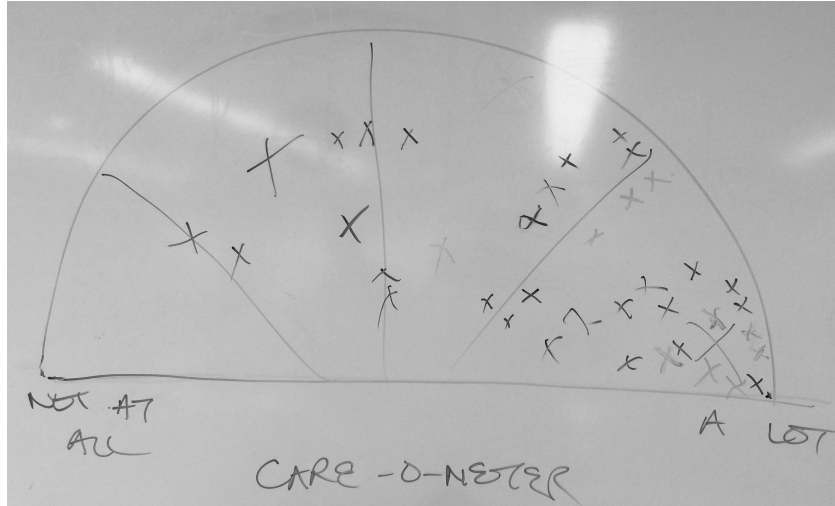 NOT AT A LOT
ALL
CARE-O-METER